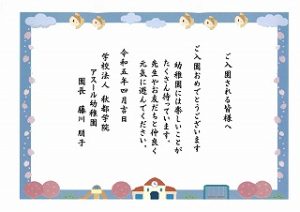 ご入園される皆様へ
ご入園おめでとうございます
幼稚園には楽しいことが
たくさん待っています。
先生やお友だちと仲良く
元気に遊んでください。
令和五年四月吉日
学校法人 秋都学院
アスール幼稚園
園長 藤川 朋子